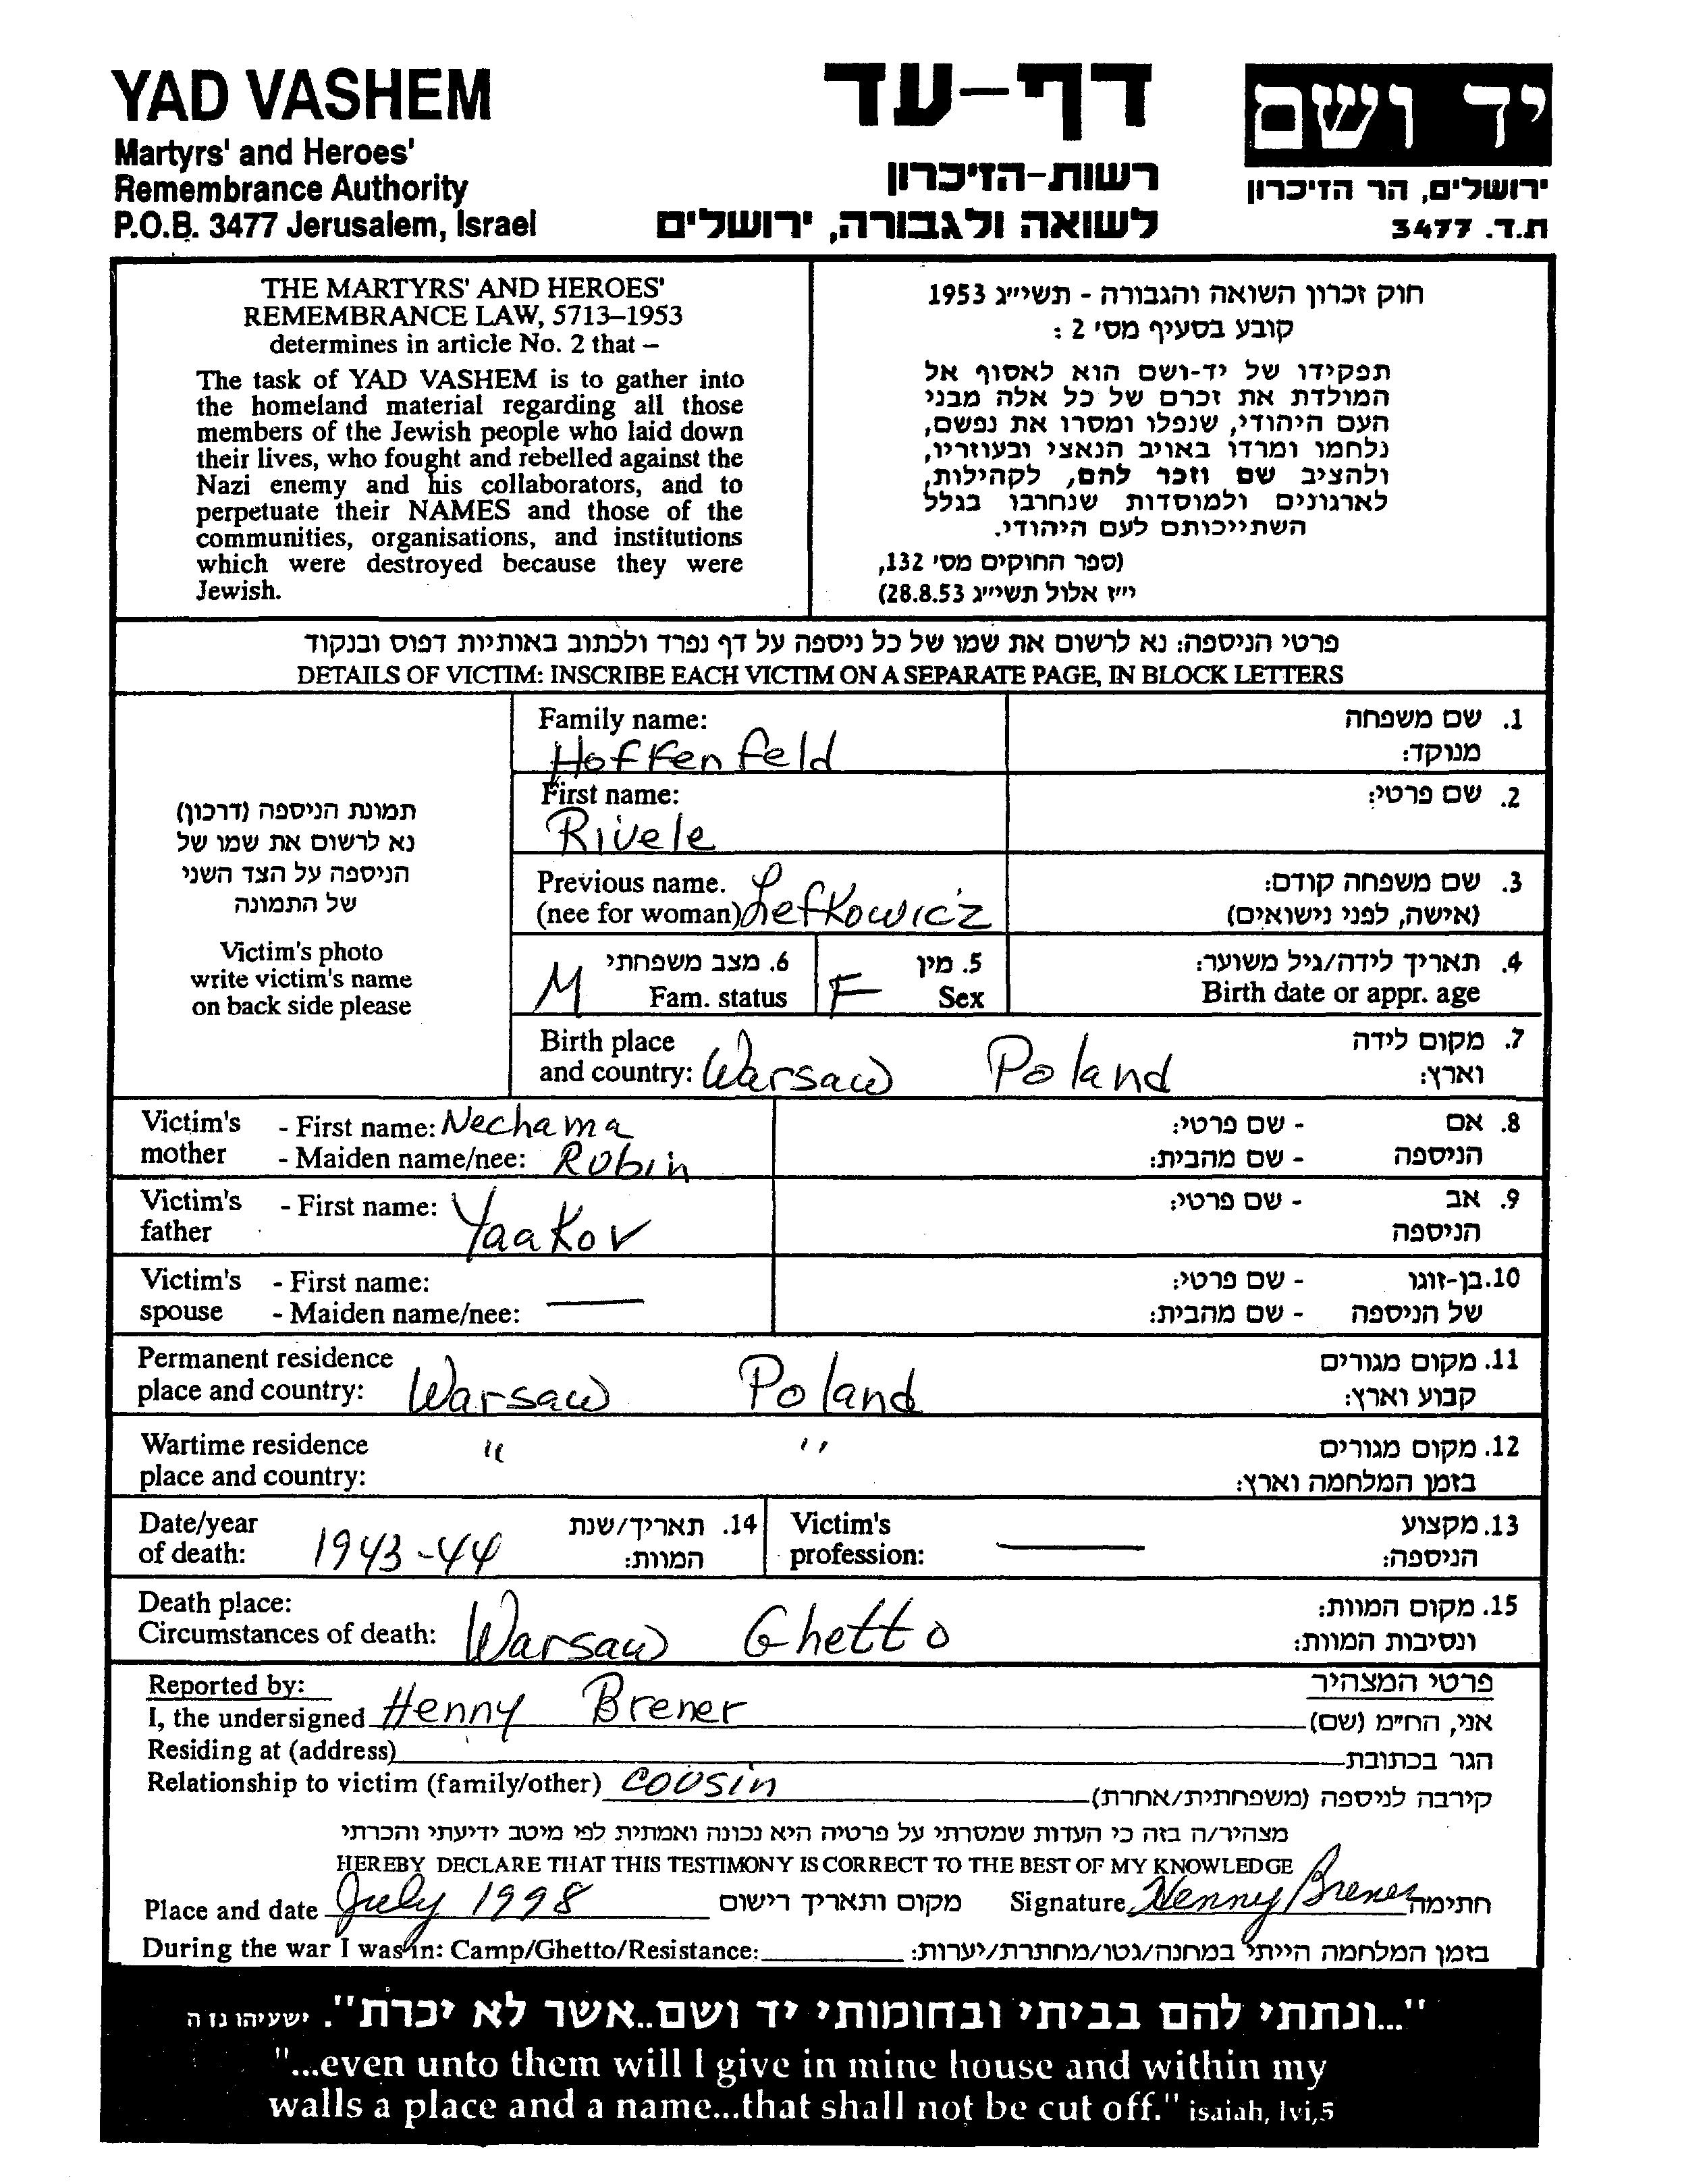 YAD VASHEM
Martyrs' and Heroes'
Remembrance Authority
P.O.B. 3477 Jerusalem, Israel
דף-עד
רשות-הזיכרון
לשואה ולגבורה, ירושלים
יד ושם
ירושלים, הר הזיכרון
ת.ד. 3477
THE MARTYRS' AND HEROES'
REMEMBRANCE LAW, 5713–1953
determines in article No. 2 that –
The task of YAD VASHEM is to gather into
the homeland material regarding all those
members of the Jewish people who laid down
their lives, who fought and rebelled against the
Nazi enemy and his collaborators, and to
perpetuate their NAMES and those of the
communities, organisations, and institutions
which were destroyed because they were
Jewish.
חוק זכרון השואה והגבורה - תשי״ג 1953
קובע בסעיף מס׳ 2 :
תפקידו של יד-ושם הוא לאסוף אל
המולדת את זכרם של כל אלה מבני
העם היהודי, שנפלו ומסרו את נפשם,
נלחמו ומרדו באויב הנאצי ובעוזריו,
ולהציב שם וזכר להם, לקהילות,
לארגונים ולמוסדות שנחרבו בגלל
השתייכותם לעם היהודי.
(ספר החוקים מס׳ 132,
י״ז אלול תשי״ג 28.8.53)
פרטי הניספה: נא לרשום את שמו של כל ניספה על דף נפרד ולכתוב באותיות דפוס ובנקוד
DETAILS OF VICTIM: INSCRIBE EACH VICTIM ON A SEPARATE PAGE, IN BLOCK LETTERS
תמונת הניספה (דרכון)
נא לרשום את שמו של
הניספה על הצד השני
של התמונה
Victim's photo
write victim's name
on back side please
Family name:
Hoffenfeld
1. שם משפחה
מנוקד:
First name:
Rivele
2. שם פרטי:
Previous name.
(nee for woman) Lefkowicz
3. שם משפחה קודם:
(אישה, לפני נישואים)
M
6. מצב משפחתי
Fam. status
F
5. מין
Sex
4. תאריך לידה/גיל משוער:
Birth date or appr. age
Birth place
and country: Warsaw Poland
7. מקום לידה
וארץ:
Victim's - First name: Nechama
mother - Maiden name/nee: Rubin
8. אם - שם פרטי:
הניספה - שם מהבית:
Victim's - First name: Yaakov
father
9. אב - שם פרטי:
הניספה
Victim's - First name:
spouse - Maiden name/nee: —
10. בן-זוגו - שם פרטי:
של הניספה - שם מהבית:
Permanent residence
place and country: Warsaw Poland
11. מקום מגורים
קבוע וארץ:
Wartime residence " "
place and country:
12. מקום מגורים
בזמן המלחמה וארץ:
Date/year
of death: 1943-44
14. תאריך/שנת
המוות:
Victim's
profession: —
13. מקצוע
הניספה:
Death place:
Circumstances of death: Warsaw Ghetto
15. מקום המוות:
ונסיבות המוות:
Reported by:
פרטי המצהיר
I, the undersigned Henny Brener אני, הח״מ (שם)
Residing at (address) הגר בכתובת
Relationship to victim (family/other) Cousin קירבה לניספה (משפחתית/אחרת)
מצהיר/ה בזה כי העדות שמסרתי על פרטיה היא נכונה ואמתית לפי מיטב ידיעתי והכרתי
HEREBY DECLARE THAT THIS TESTIMONY IS CORRECT TO THE BEST OF MY KNOWLEDGE
Place and date July 1998 מקום ותאריך רישום Signature Henny Brener חתימה
During the war I was in: Camp/Ghetto/Resistance: בזמן המלחמה הייתי במחנה/גטו/מחתרת/יערות:
"...ונתתי להם בביתי ובחומותי יד ושם..אשר לא יכרת". ישעיהו נו ה
"...even unto them will I give in mine house and within my
walls a place and a name...that shall not be cut off." isaiah, lvi,5